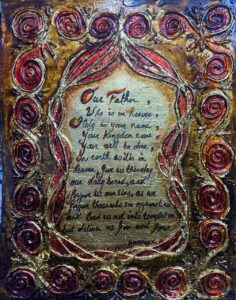 Our Father,
Who is in heaven,
Holy is your name,
Your Kingdom come
Your will be done,
On earth as it is in
Heaven, Give us this day
our daily bread, and
forgive us our sins, as we
forgive those who sin against us
and lead us not into temptation
but deliver us from evil Amen